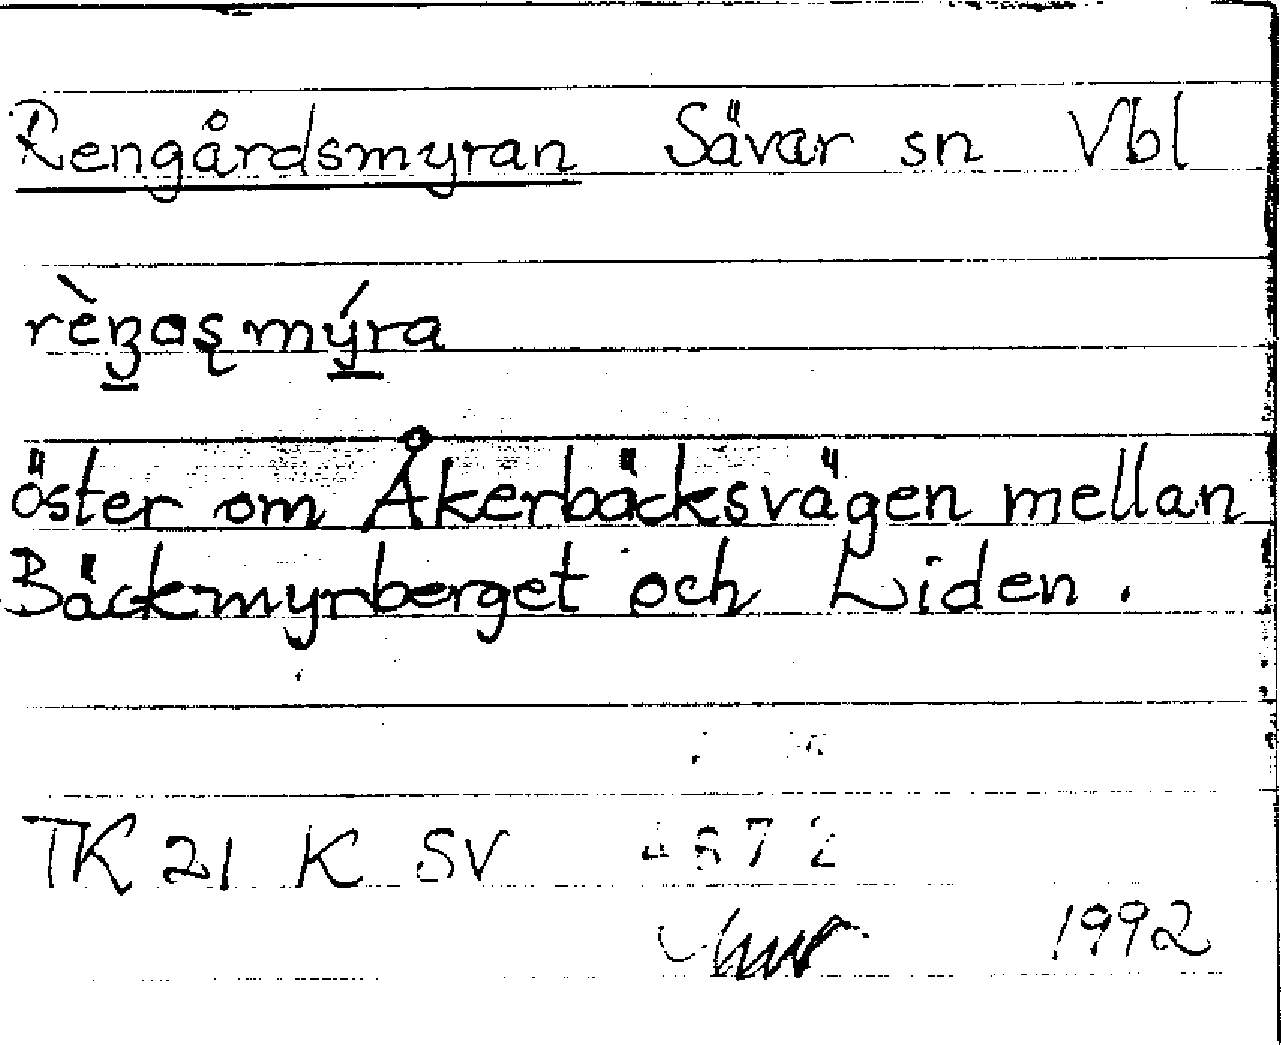 Rengårdsmyran Sävar sn Vbl
öster om Åkerbäcksvägen mellan
Bäckmyrberget och Liden.
TK 21 K SV
1992